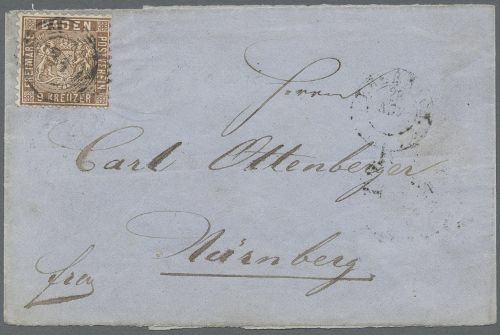 BADEN
FREIMARKE
POSTVEREIN
9 KREUZER
Herrn
Carl Ottenberger
Nürnberg